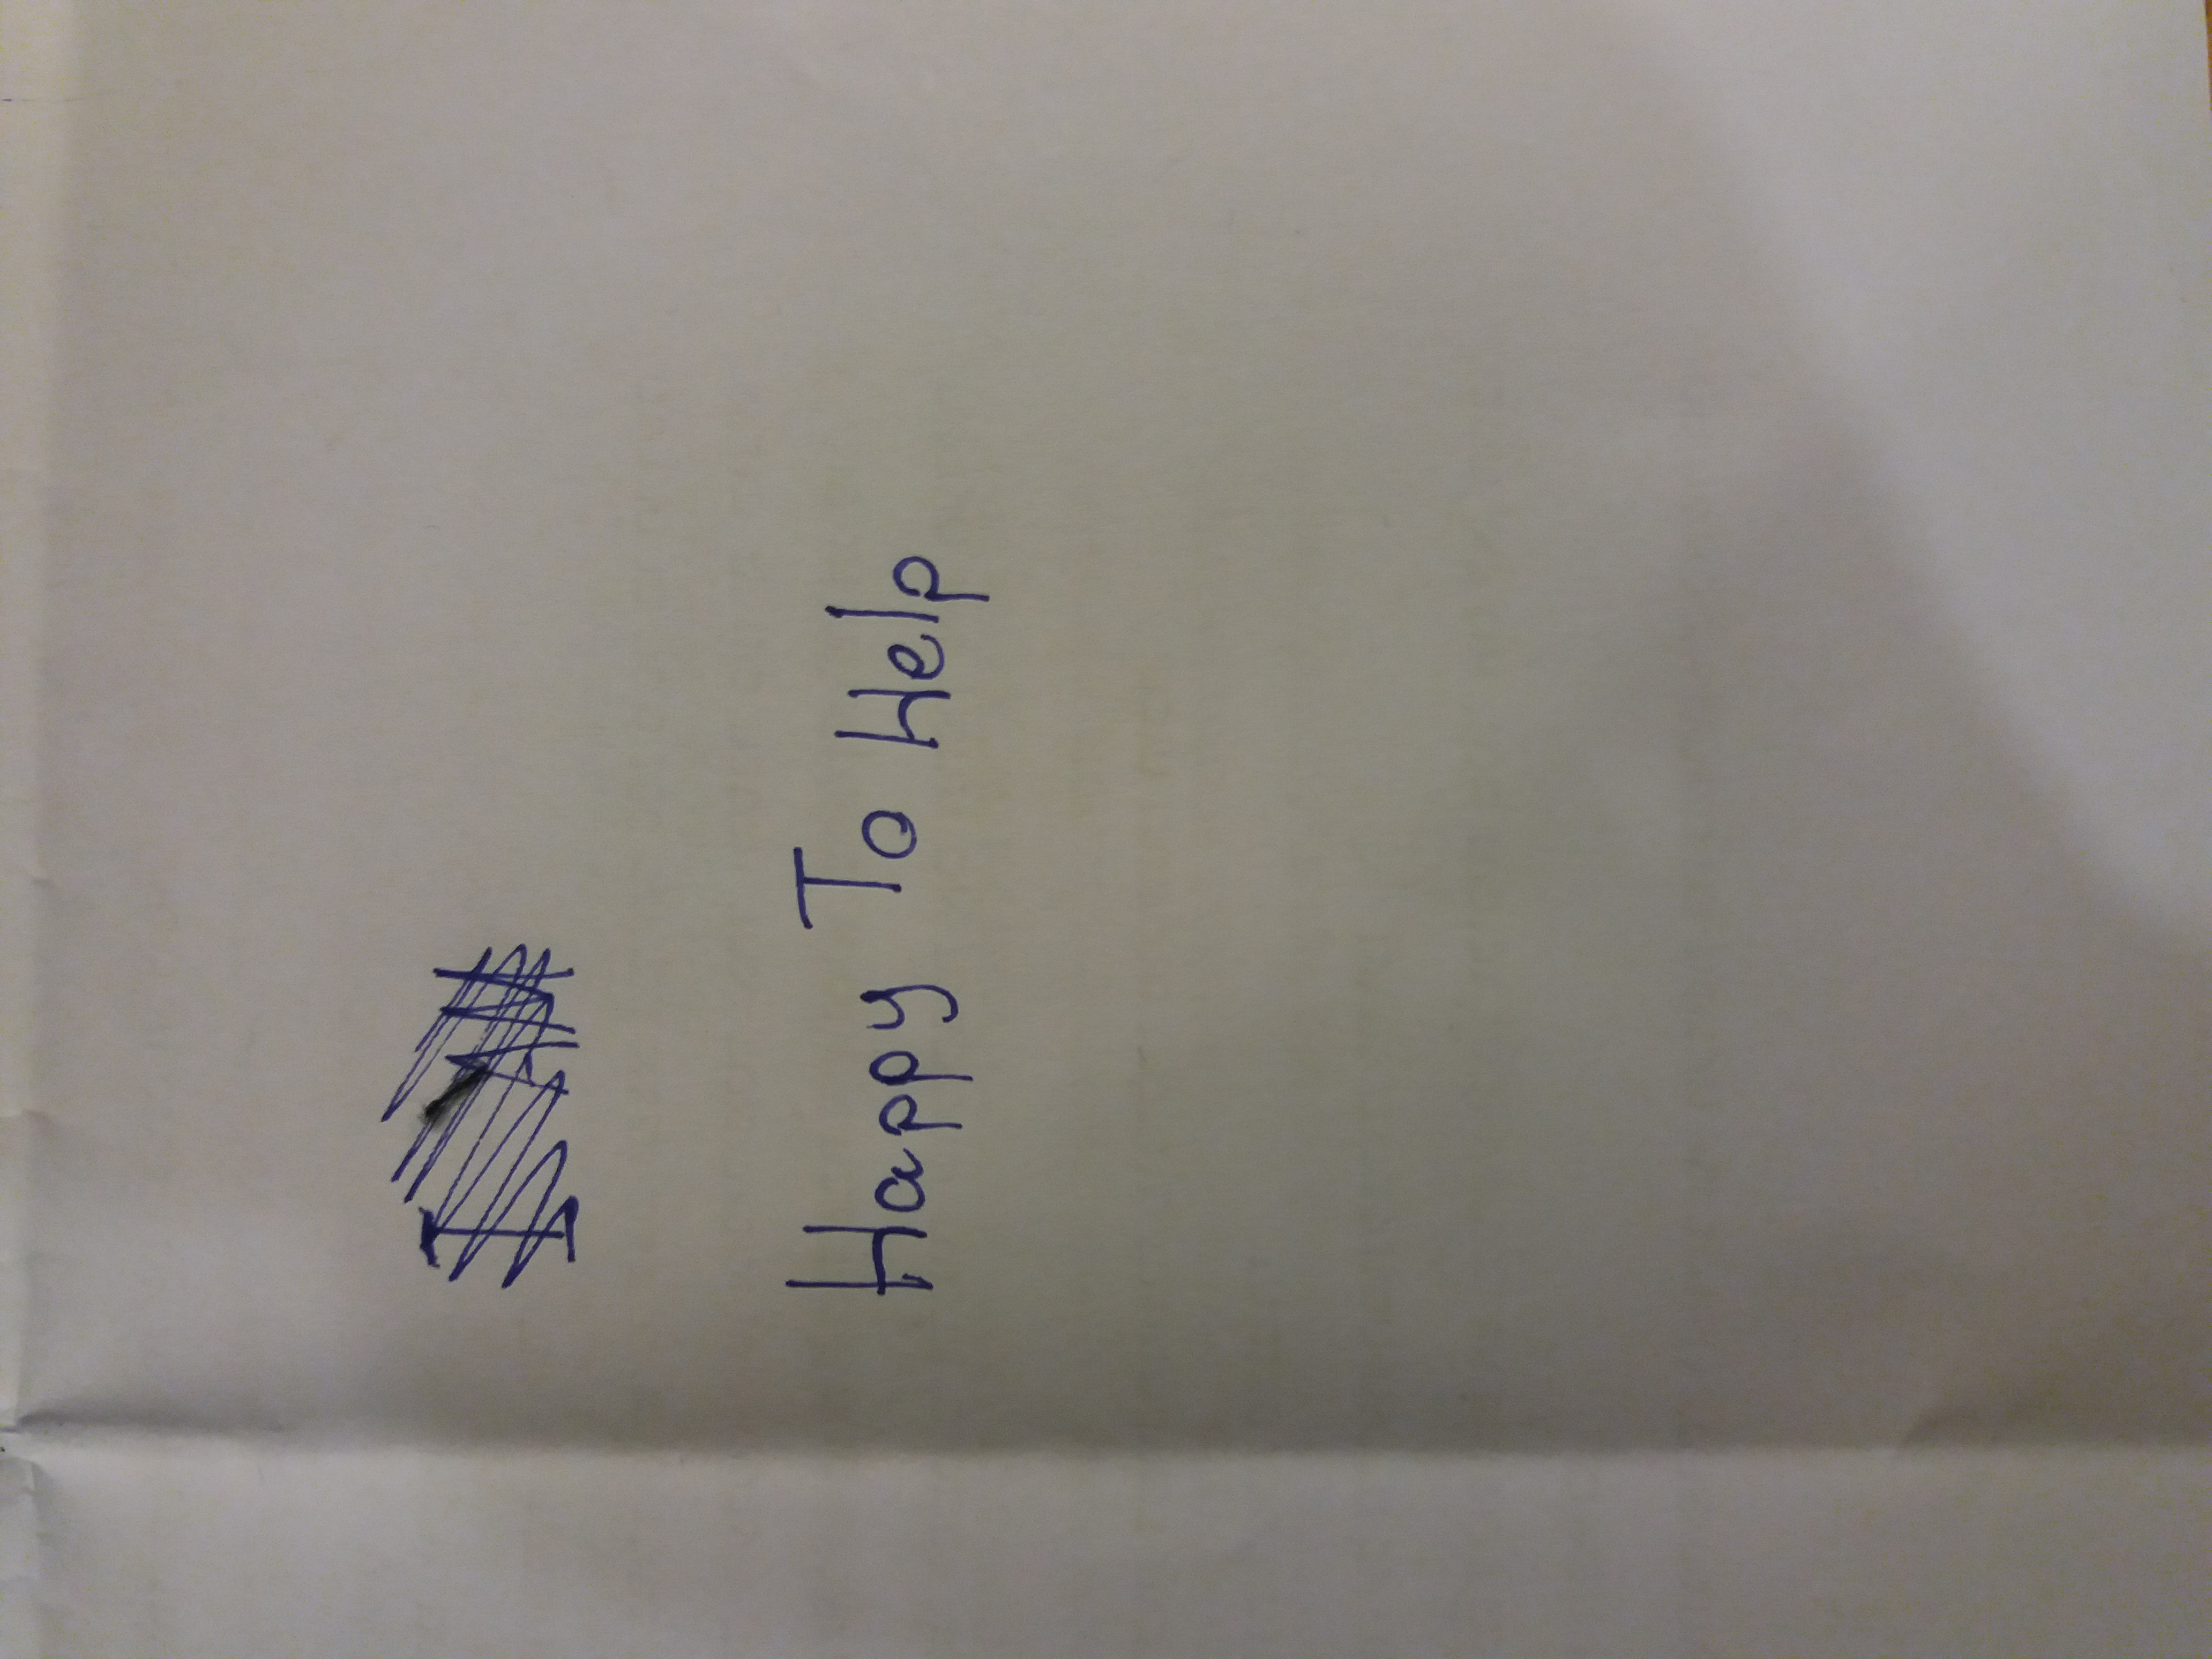 I AM
Happy To Help